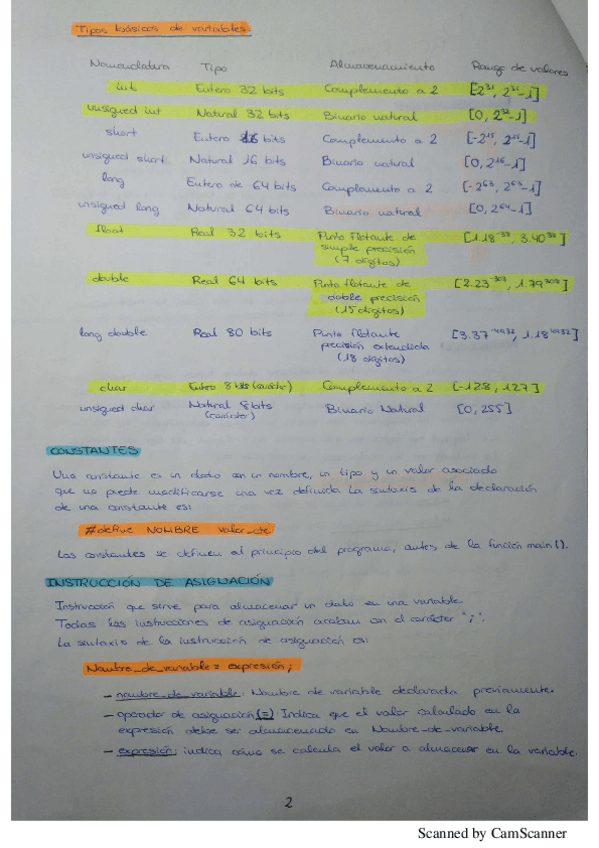 Tipos básicos de variables
Nomenclatura Tipo Almacenamiento Rango de valores
int Entero 32 bits Complemento a 2 [2^31, 2^31-1]
unsigned int Natural 32 bits Binario natural [0, 2^32-1]
short Entero 16 bits Complemento a 2 [-2^15, 2^15-1]
unsigned short Natural 16 bits Binario natural [0, 2^16-1]
long Entero de 64 bits Complemento a 2 [-2^63, 2^63-1]
unsigned long Natural 64 bits Binario natural [0, 2^64-1]
float Real 32 bits Punto flotante de [1.18^-38, 3.40^38]
simple precisión
(7 dígitos)
double Real 64 bits Punto flotante de [2.23^-308, 1.79^308]
doble precisión
(15 dígitos)
long double Real 80 bits Punto flotante [3.37^-4932, 1.18^4932]
precisión extendida
(18 dígitos)
char Entero 8 bits (carácter) Complemento a 2 [-128, 127]
unsigned char Natural 8 bits Binario Natural [0, 255]
(carácter)
CONSTANTES
Una constante es un dato con un nombre, un tipo y un valor asociado
que no puede modificarse una vez definida. La sintaxis de la declaración
de una constante es:
#define NOMBRE valor_cte
Las constantes se definen al principio del programa, antes de la función main().
INSTRUCCIÓN DE ASIGNACIÓN
Instrucción que sirve para almacenar un dato en una variable.
Todas las instrucciones de asignación acaban con el carácter ";".
La sintaxis de la instrucción de asignación es:
Nombre_de_variable = expresión;
- nombre_de_variable: Nombre de variable declarada previamente.
- operador de asignación (=) Indica que el valor calculado en la
expresión debe ser almacenado en Nombre_de_variable.
- expresión: indica cómo se calcula el valor a almacenar en la variable.
2
Scanned by CamScanner